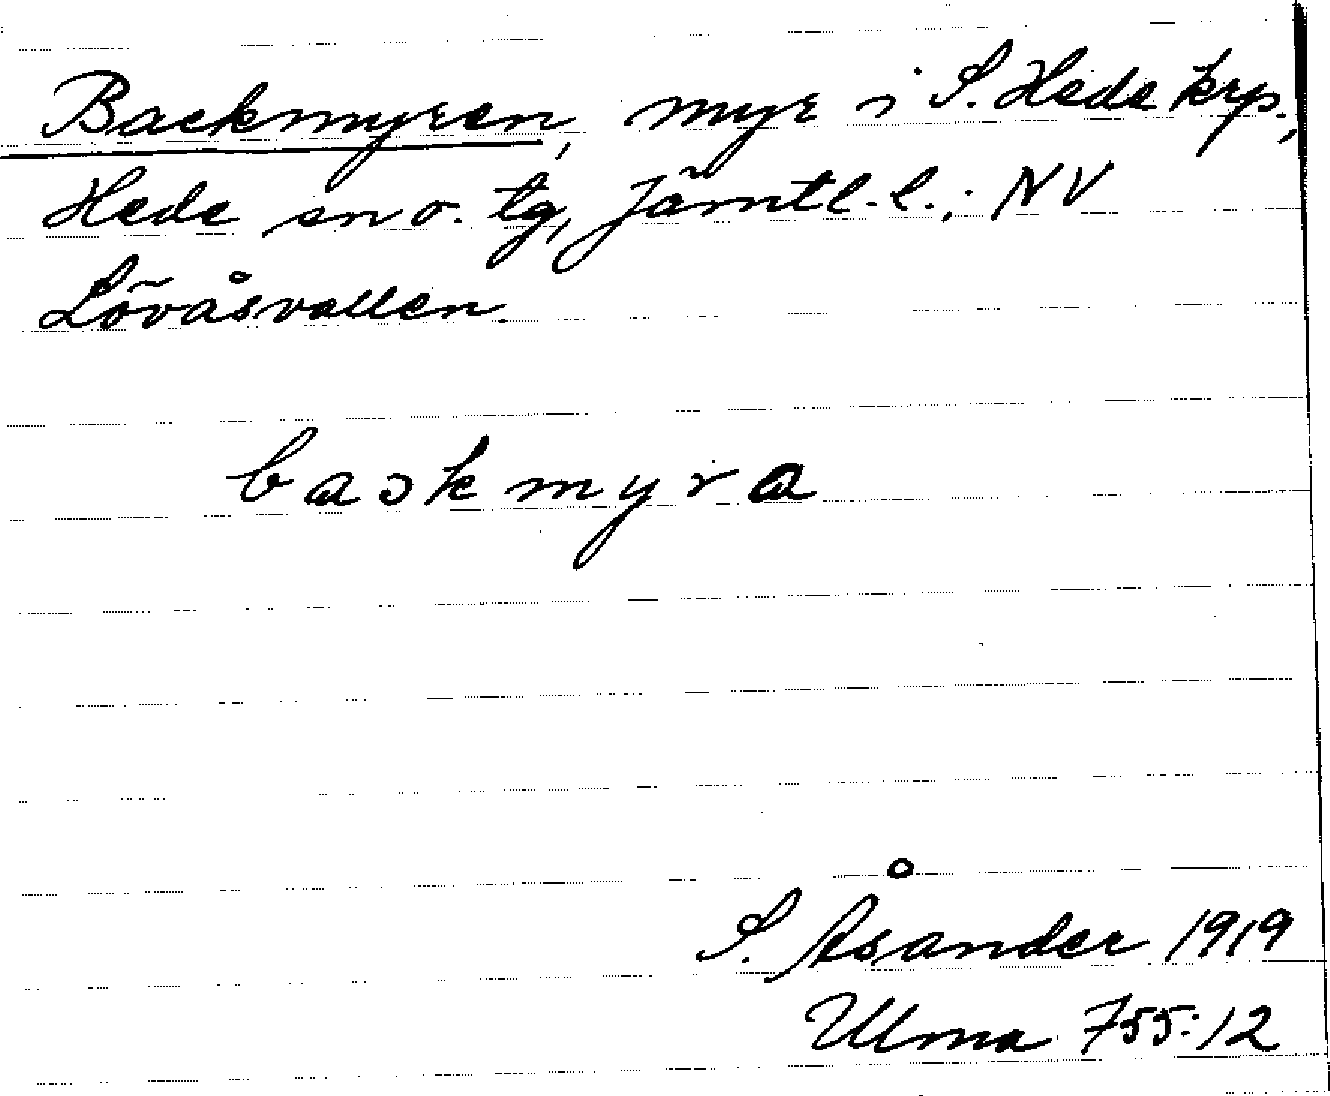 Backmyren, myr i S. Hede krp.,
Hede sn o. tg, Jämtl. l.; NV
Lövåsvallen.
backmyra
S. Åsander 1919
Ulma 755:12